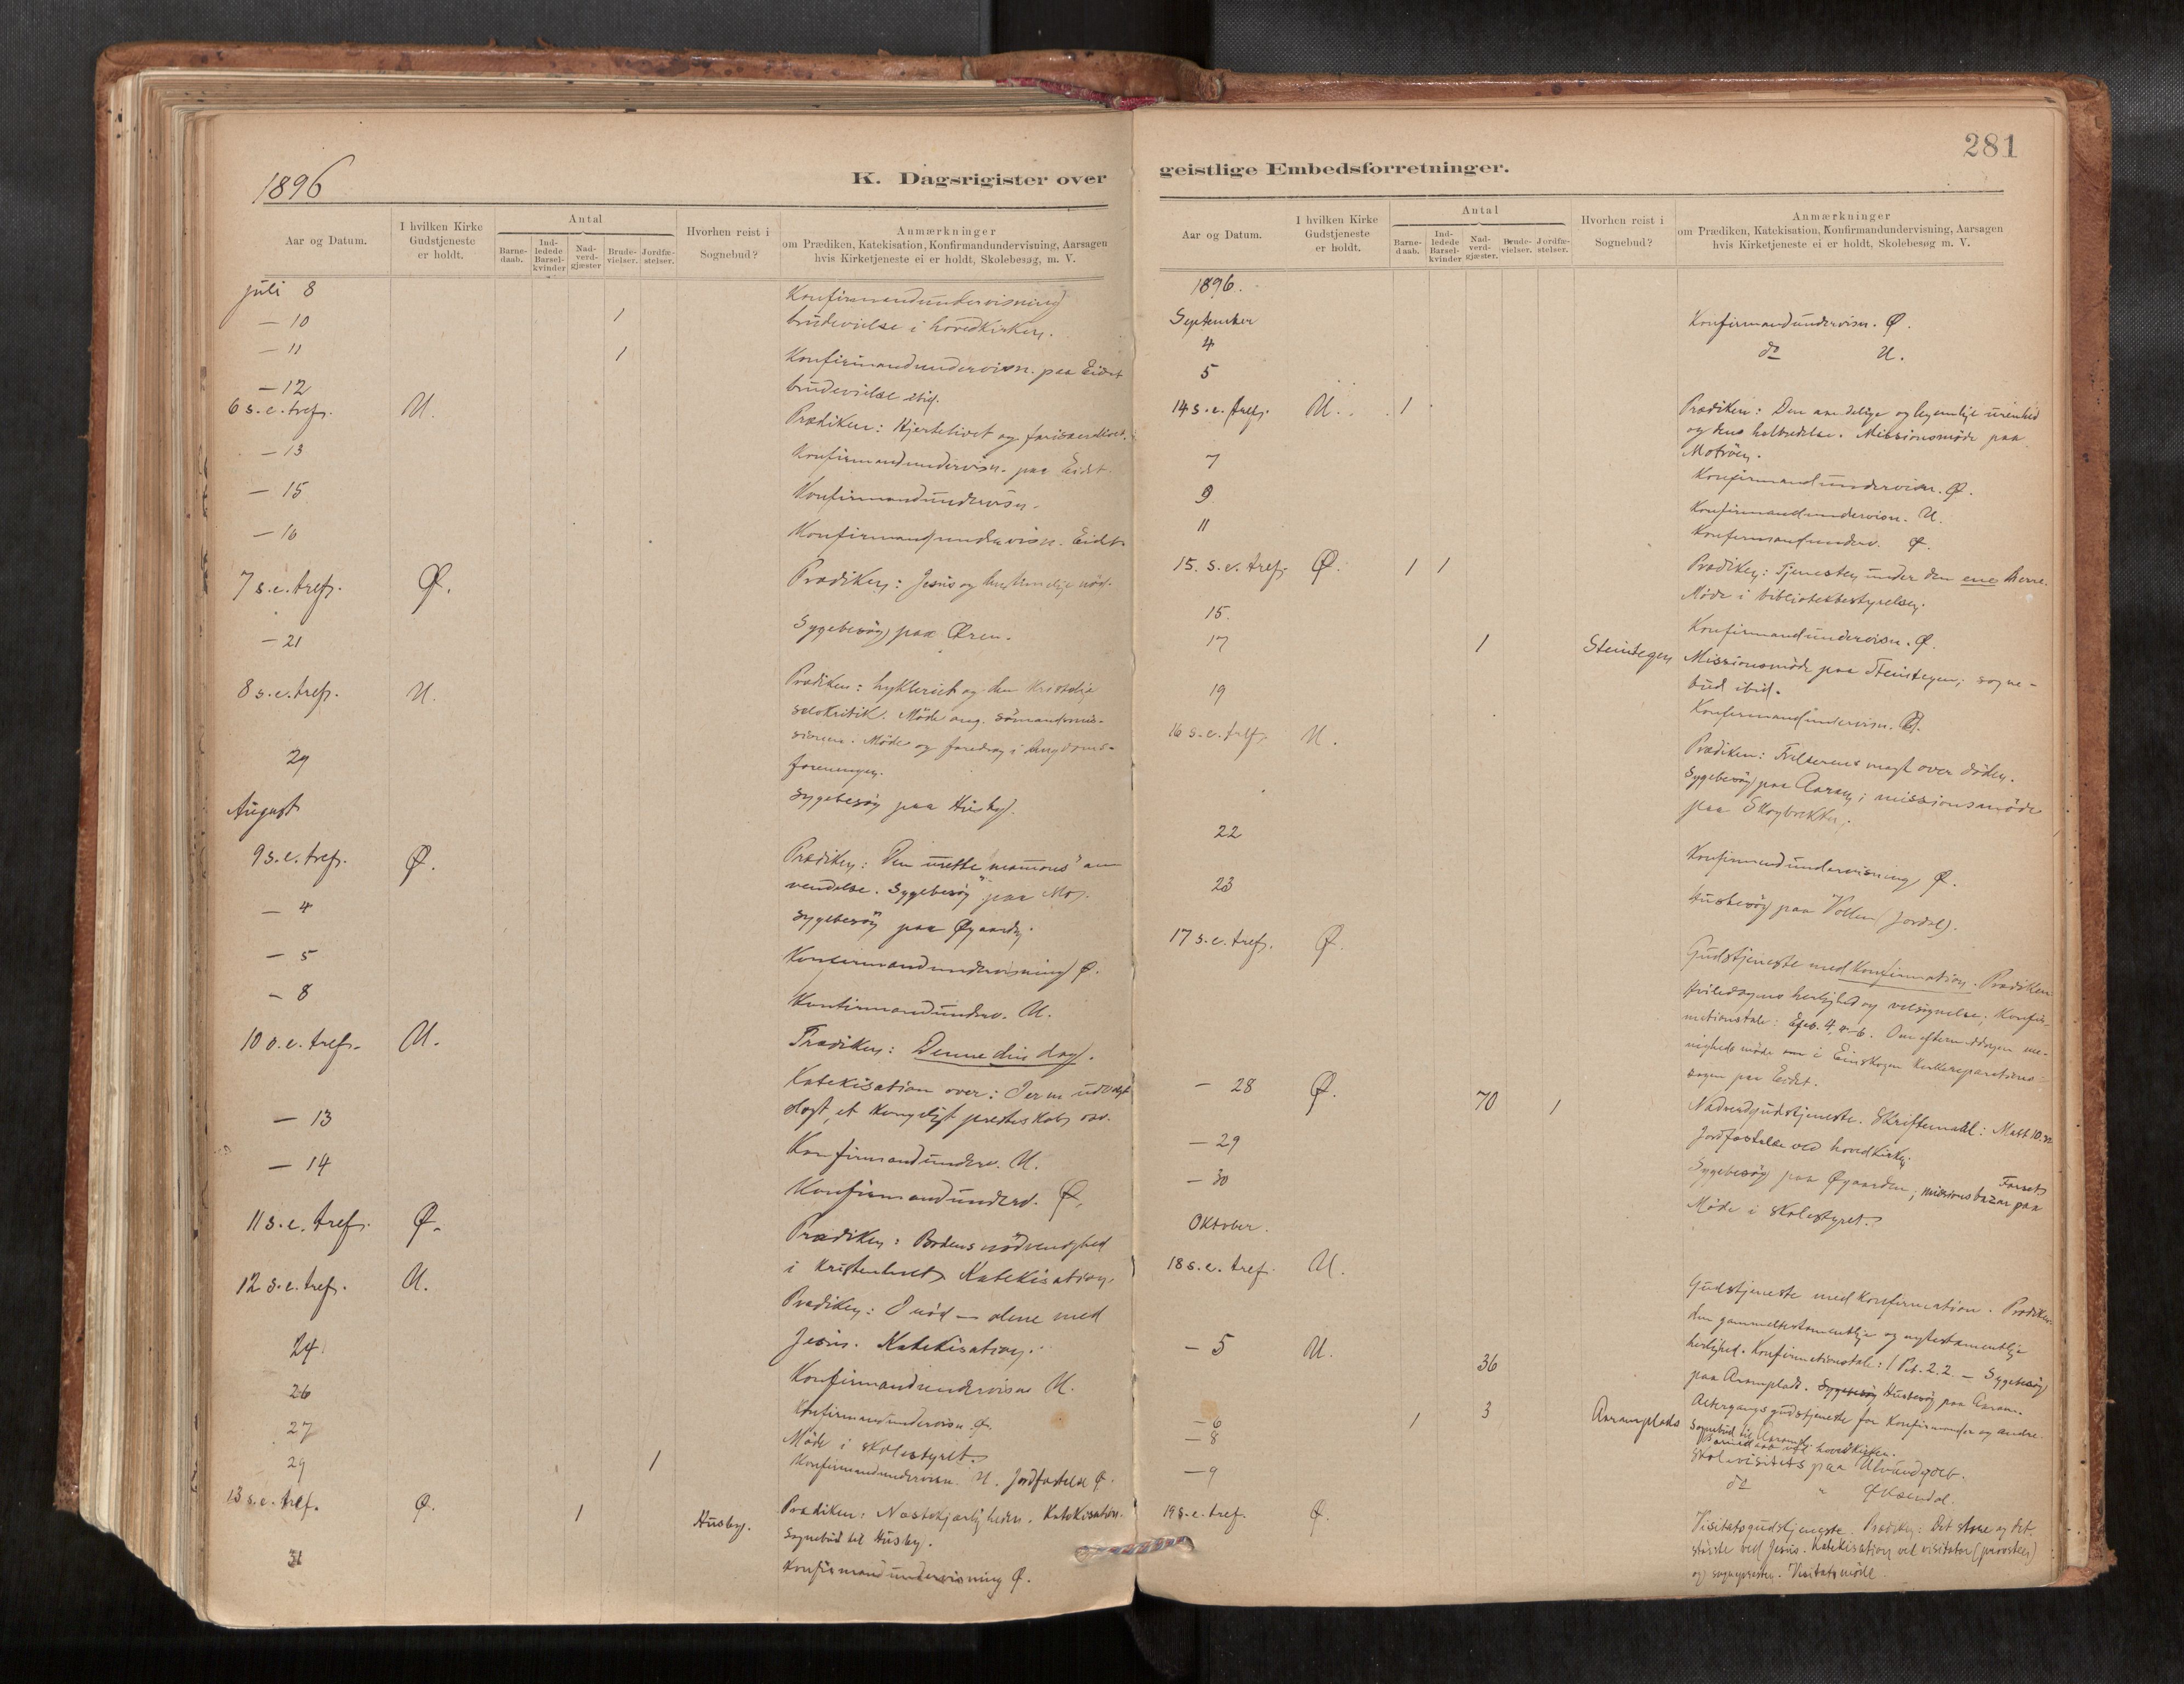 1896
K. Dagsrigister over
Aar og Datum.
I hvilken Kirke Gudstjeneste er holdt.
Antal
Barne-daab.
Ind-ledede Barsel-kvinder
Nad-verd-gjæster
Brude-vielser.
Jordfæ-stelser.
Hvorhen reist i Sognebud?
Anmærkninger
om Prædiken, Katekisation, Konfirmandundervisning, Aarsagen
hvis Kirketjeneste ei er holdt, Skolebesøg, m. V.
juli 8 Konfirmandundervisning
— 10 1 brudevielse i hovedkirken.
— 11 1 Konfirmandundervisn. paa Eidet
brudevielse ibid.
— 12
6 s. e. tref. U. Prædiken: Hjertelivet og
— 13 Konfirmandundervisn. paa Eidet
— 15 Konfirmandundervisn.
— 16 Konfirmandundervisn. Eidet
7 s. e. tref. Ø. Prædiken: Jesus og den nød.
— 21 Sygebesøg paa Øren.
8 s. e. tref. U. Prædiken: hykleriet og den kristelige
selvkritik. Møde ang. sømandsmis-
sionen. Møde og foredrag i Ungdoms-
foreningen.
29 Sygebesøg paa Husby.
August
9 s. e. tref. Ø. Prædiken: Den urette mamons an
vendelse. Sygebesøg paa Mo.
— 4 Sygebesøg paa Øygarden.
— 5 Konfirmandundervisning Ø.
— 8 Konfirmandunderv. U.
10 s. e. tref. U. Prædiken: Denne din dag.
Katekisation over: I er en udvalgt
slægt, et kongeligt presteskab osv.
— 13 Konfirmandunderv. U.
— 14 Konfirmandunderv. Ø.
11 s. e. tref. Ø. Prædiken: Bodens nødvendighed
i kristenlivet. Katekisation.
12 s. e. tref. U. Prædiken: I nød — alene med
Jesus. Katekisation.
24 Konfirmandundervisn U.
26 Konfirmandundervisn. Ø.
27 Møde i skolestyret.
29 1 Konfirmandundervisn. U. Jordfæstelse Ø.
13 s. e. tref. Ø. 1 Husby. Prædiken: Næstekjærligheden. Katekisation.
Sognebud til Husby.
31 Konfirmandundervisning Ø.
281
geistlige Embedsforretninger.
Aar og Datum.
I hvilken Kirke Gudstjeneste er holdt.
Antal
Barne-daab.
Ind-ledede Barsel-kvinder
Nad-verd-gjæster.
Brude-vielser.
Jordfæ-stelser.
Hvorhen reist i Sognebud?
Anmærkninger
om Prædiken, Katekisation, Konfirmandundervisning, Aarsagen
hvis Kirketjeneste ei er holdt, Skolebesøg m. V.
1896.
September
4 Konfirmandundervisn. Ø.
5 do U.
14 s. e. tref. U. 1 Prædiken: Den aandelige og legemlige urenhed
og dens helbredelse. Missionsmøde paa
Motrøen.
7 Konfirmandundervisn. Ø.
9 Konfirmandundervisn. U.
11 Konfirmandunderv. Ø.
15. s. e. tref. Ø. 1 1 Prædiken: Tjenesten under den ene Herre.
Møde i bibliotekbestyrelsen.
15. Konfirmandundervisn. Ø.
17 1 Steinstegen Missionsmøde paa Steinstegen; sogne-
bud ibid.
19 Konfirmandundervisn.
16 s. e. tref. U. Prædiken: Frelserens magt over døden.
Sygebesøg paa Aaram; missionsmøde
paa
22 Konfirmandundervisning Ø.
23 Husbesøg paa Vollen (Jordal).
17 s. e. tref. Ø. Gudstjeneste med Konfirmation. Prædiken
hviledagens herlighed og velsignelse; Konfir-
mationstale: Efes. 4, Om eftermiddagen me-
nighedsmøde i kirkereparations-
sagen paa Eidet.
— 28 Ø. 70 1 Nadverdgudstjeneste. Skriftemaal: Matt 10.
Jordfæstelse ved hovedkirken.
— 29 Sygebesøg paa Øygarden; missionsbazar paa
— 30 Møde i skolestyret.
Oktober.
18 s. e. tref. U. Gudstjeneste med Konfirmation. Prædiken
den gammeltestamentlige og nytestamentlige
herlighed. Konfirmationstale: 1 Pet. 2.2. — Sygebesøg
paa Aaramplads. Sygebesøg Husbesøg paa Aaram.
— 5 U. 36 Altergangsgudstjeneste for Konfirmander og andre.
— 6 1 3 Aaramplads Sognebud til Aarampl.
Barnedaab ved hovedkirken.
— 8 Skolevisitats paa Ulvundgden.
— 9 do " Øksendal.
19 s. e. tref. Ø. Visitatsgudstjeneste. Prædiken: Det store og det
største ved Jesus. Katekisation ved visitator (provsten)
og sognepresten. Visitatsmøde.